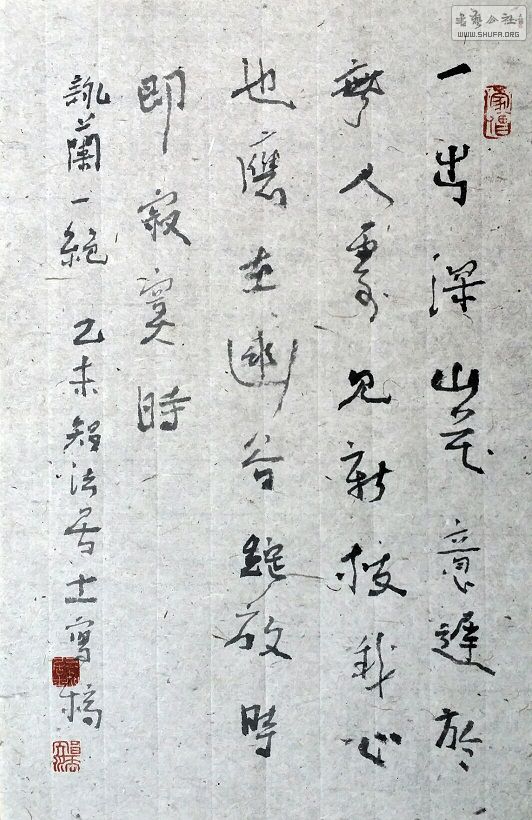 一出深山花意遲於
無人處見新枝我心
也應在幽谷綻放時
即寂寞時
詠蘭一絕 乙未智法居士寫稿
书艺公社
WWW.SHUFA.ORG